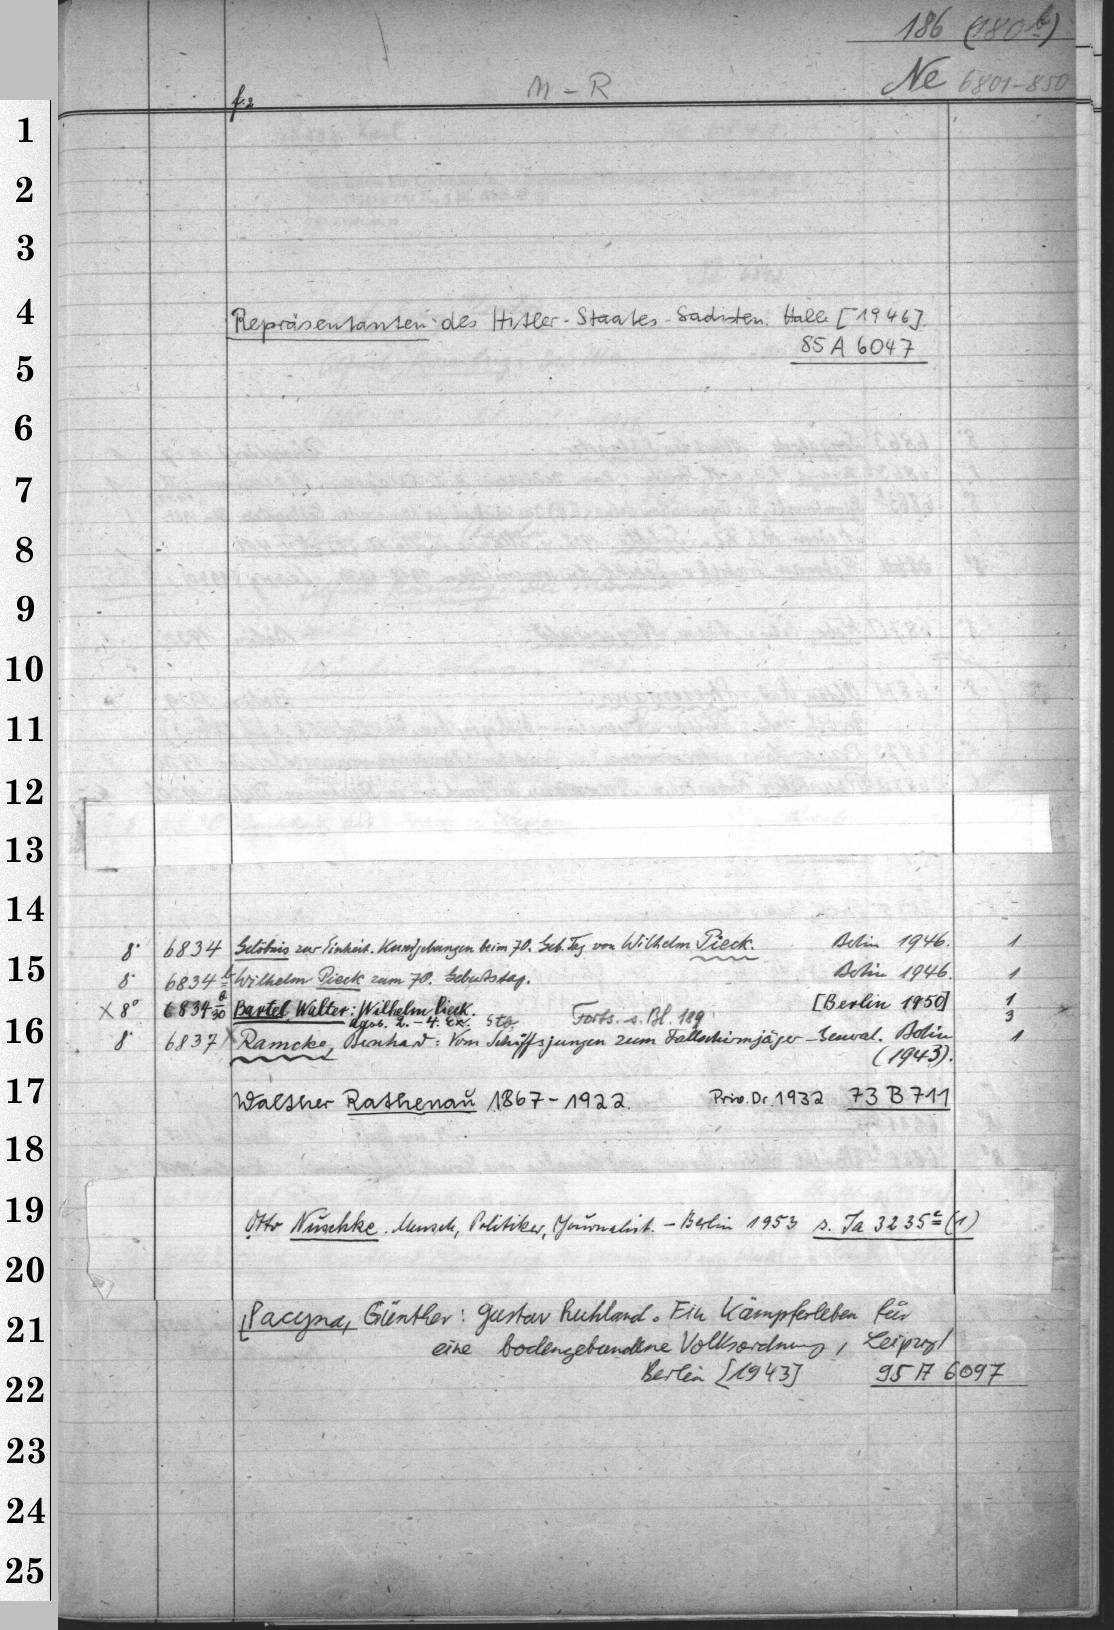 186 (180b)
f.2 M-R Ne 6801-850
1
2
3
4 Repräsentanten des Hitler-Staates-Sadisten. Halle [1946].
85 A 6047
5
6
7
8
9
10
11
12
13
14
8° 6834 Gelöbnis zur Einheit. Kundgebungen beim 70. Geb. Tag von Wilhelm Pieck. Berlin 1946. 1
15
8° 6834 b Wilhelm Pieck zum 70. Geburtstag. Berlin 1946. 1
X 8° 6834 Bartel, Walter: Wilhelm Pieck. [Berlin 1950] 1
Ausg. 2.-4. Ex. Stb. Forts. s. Bl. 189 3
16
8° 6837 Ramcke, Bernhard: Vom Schiffsjungen zum Fallschirmjäger-General. Berlin 1
(1943).
17 Walther Rathenau 1867-1922. Priv. Dr. 1932 73 B 711
18
19 Otto Nuschke. Mensch, Politiker, Journalist. - Berlin 1953 s. Ja 3235 (1)
20
[Pacyna, Günther: Gustav Ruhland. Ein Kämpferleben für
21 eine bodengebundene Volksordnung, Leipzig/
22 Berlin [1943] 95 A 6097
23
24
25